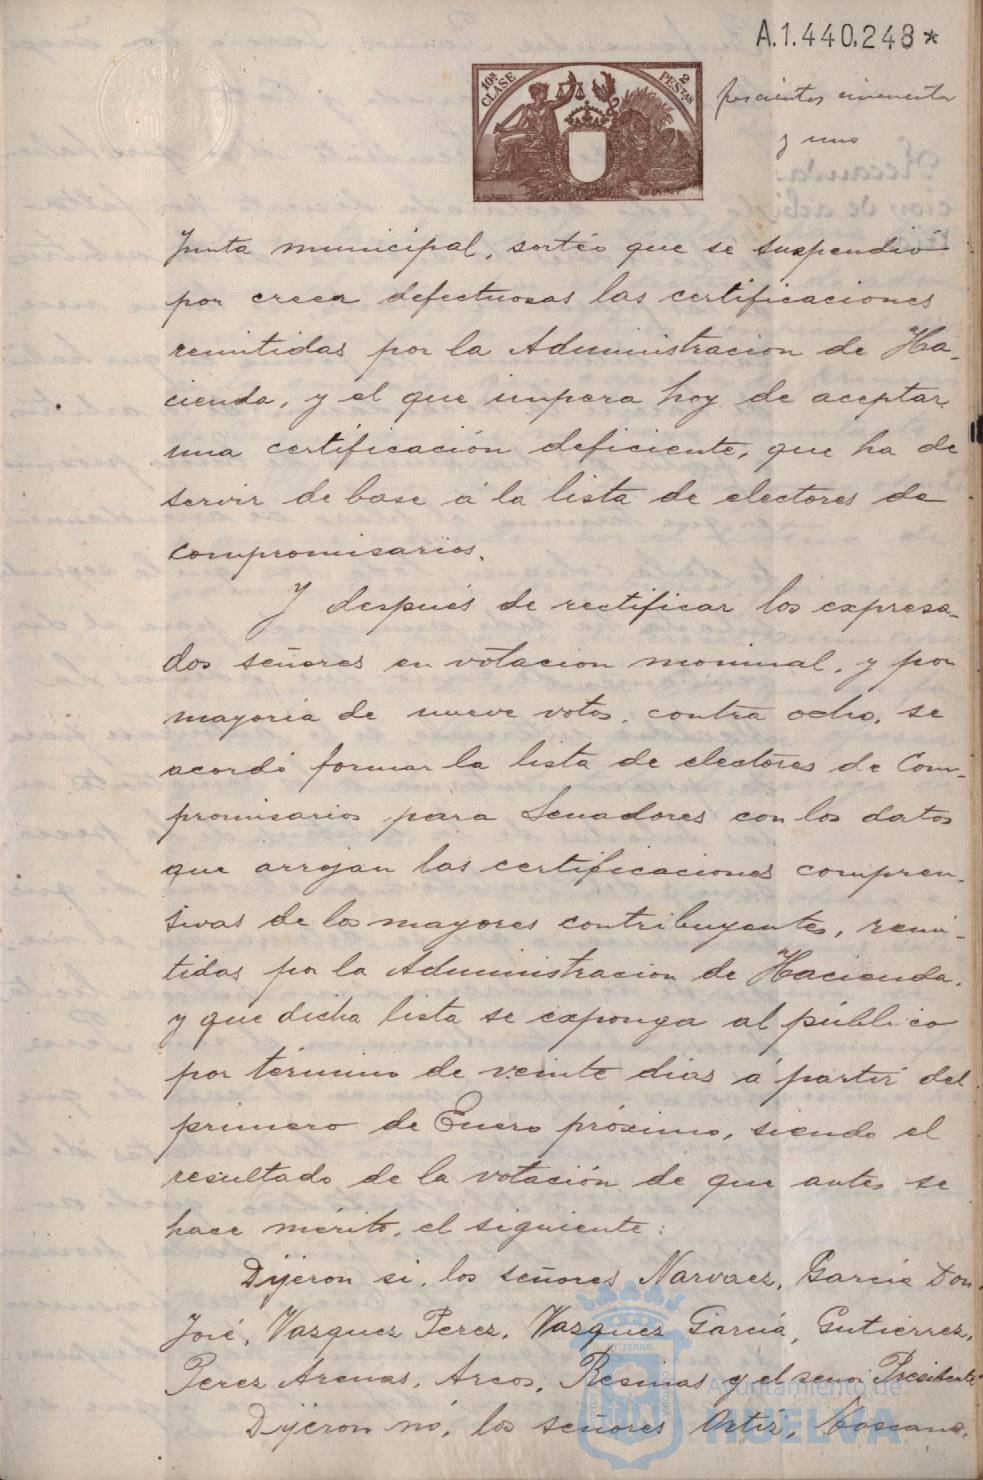 A.1.440.248*
10ª CLASE
2 PESETAS
doscientos cincuenta
y uno
Junta municipal, sorteo que se suspendió
por creer defectuosas las certificaciones
remitidas por la Administracion de Ha-
cienda, y el que impera hoy de aceptar
una certificación deficiente, que ha de
servir de base á la lista de electores de
compromisarios.
Y después de rectificar los expresa-
dos señores en votacion nominal, y por
mayoria de nueve votos, contra ocho, se
acordó formar la lista de electores de Com-
promisarios para Senadores con los datos
que arrojan las certificaciones compren-
sivas de los mayores contribuyentes, remi-
tidas por la Administracion de Hacienda,
y que dicha lista se exponga al público
por término de veinte dias á partir del
primero de Enero próximo, siendo el
resultado de la votación de que antes se
hace mérito, el siguiente:
Dijeron si, los señores Narvaez, García Don
José, Vazquez Perez, Vazquez García, Gutierrez,
Perez Arenas, Arcos, Resinas y el señor Presidente
Dijeron nó, los señores Ortiz,
Ayuntamiento de
HUELVA